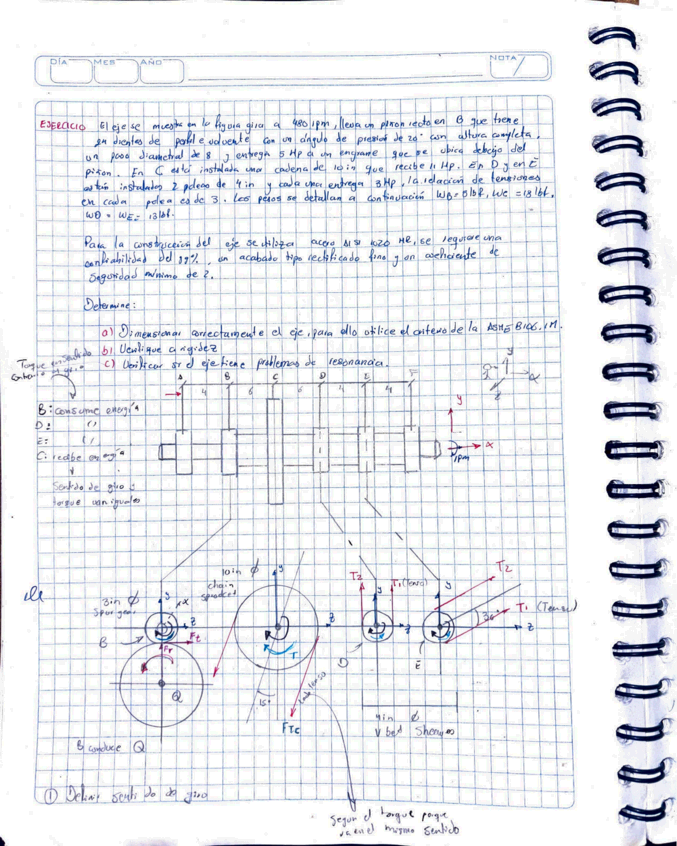 DÍA MES AÑO NOTA
EJERCICIO El eje se muestra en la figura gira a 480 rpm, lleva un piñon recto en B que tiene
24 dientes de perfil evolvente con un ángulo de presión de 20° con altura completa,
un paso diametral de 8 y entrega 5 Hp a un engrane que se ubica debajo del
piñon. En C está instalada una cadena de 10 in que recibe 11 Hp. En D y en E
están instalados 2 poleas de 4 in y cada una entrega 3 Hp, la relación de tensiones
en cada polea es de 3. Los pesos se detallan a continuación WB = 5 lbf, WC = 18 lbf.
WD = WE = 13 lbf.
Para la construcción del eje se utiliza acero AISI 1020 HR, se requiere una
confiabilidad del 99%, un acabado tipo rectificado fino y un coeficiente de
seguridad mínimo de 2.
Determine:
a) Dimensionar correctamente el eje, para ello utilice el criterio de la ASME B106.1M.
b) Verifique a rigidez
c) Verificar si el eje tiene problemas de resonancia.
Torque en sentido
contrario al giro
A B C D E F
4 6 6 4 4
y
x
z
B: consume energía
D: ''
E: ''
C: recibe energía
Sentido de giro y
torque van iguales
y
x
rpm
3in ϕ
Spur gear
B
y
x
z
Ft
Fr
Q
B conduce Q
10in ϕ
chain
sprocket
y
z
T
15°
Lado tenso
FTc
T2
T1 (Tenso)
y
z
D
T2
T1 (Tenso)
30°
y
z
E
4in ϕ
V belt Sheaves
① Definir sentido de giro
Según el torque porque
va en el mismo sentido